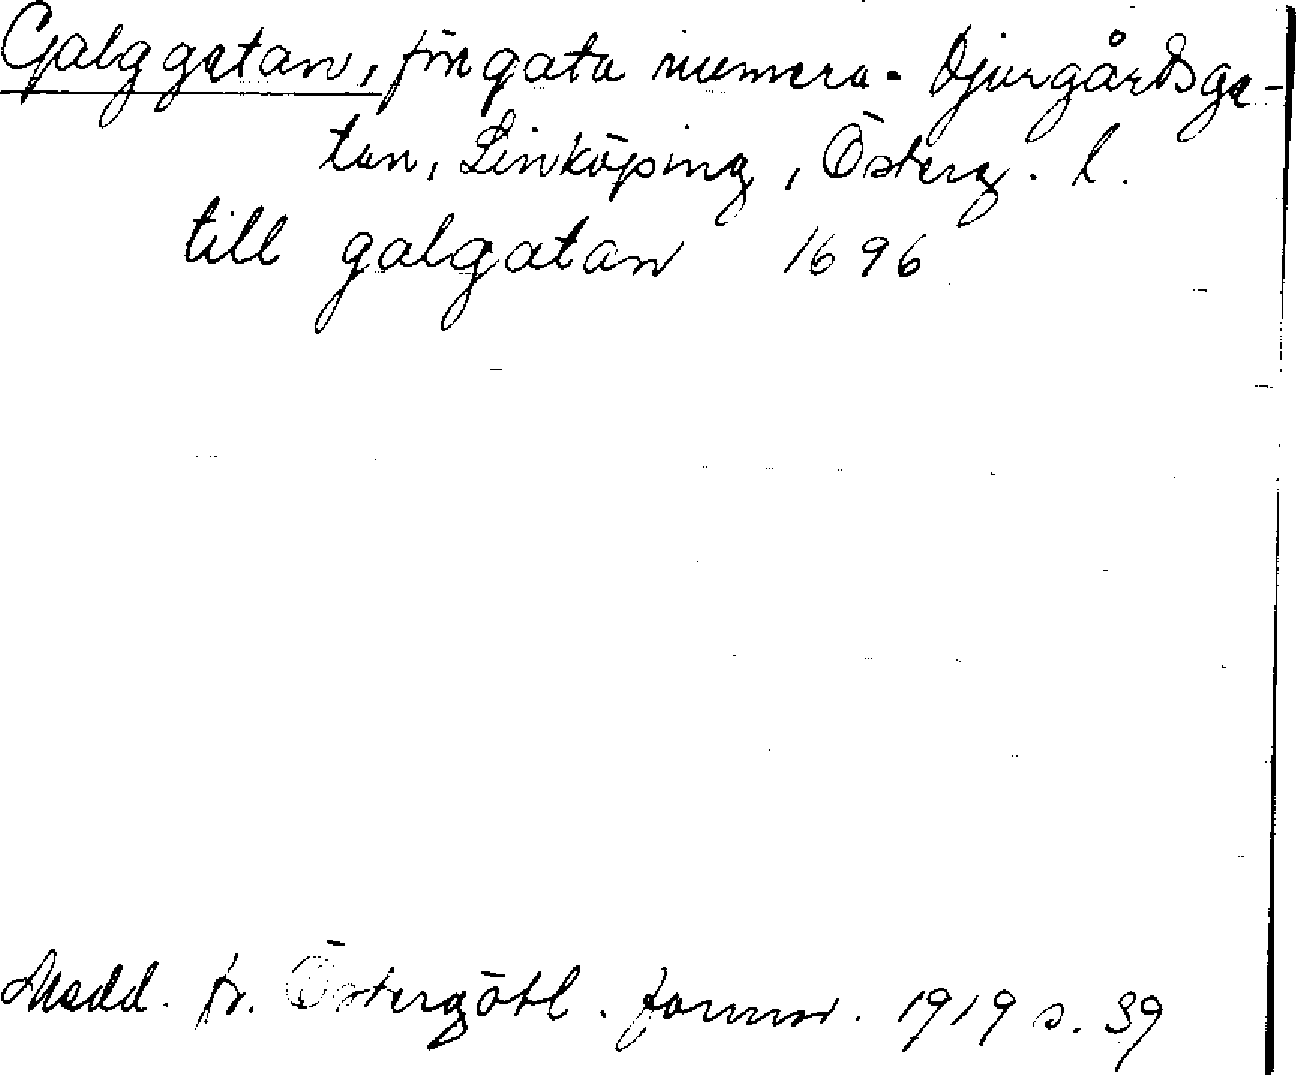 Galggatan, förr gata numera - Djurgårdsga-
tan, Linköping, Österg. l.
till galgatan 1696
Medd. fr. Östergötl. fornm. 1919 s. 39